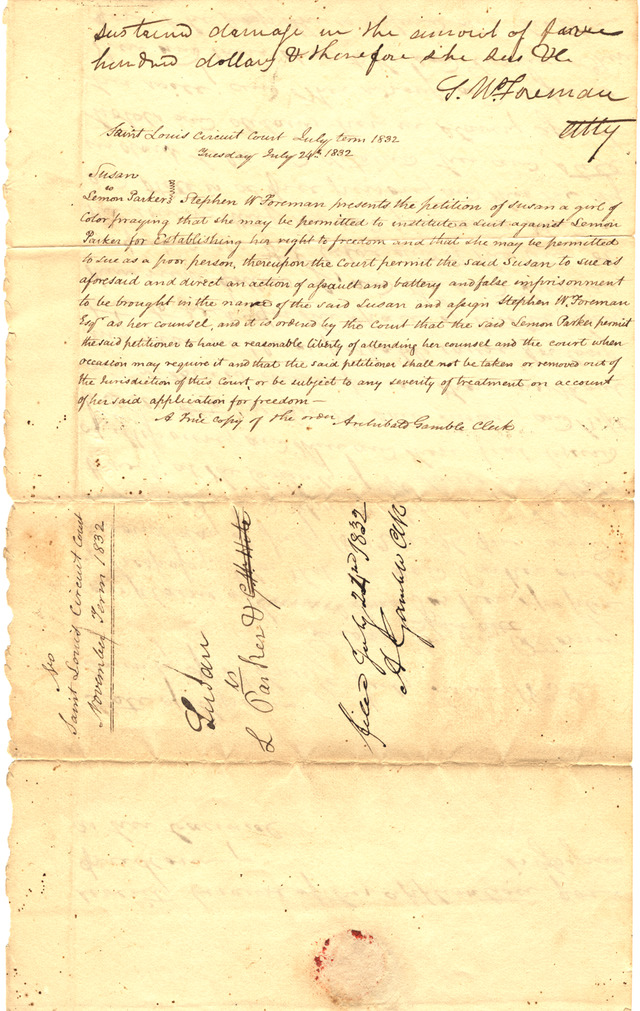 sustained damage in the amount of five
hundred dollars & therefore she sues &c
S. W. Foreman
Atty
Saint Louis Circuit Court July term 1832
Tuesday July 24th 1832
Susan
vs
Lemon Parker } Stephen W Foreman presents the petition of Susan a girl of
Color praying that she may be permitted to institute a Suit against Lemon
Parker for Establishing her right to freedom and that she may be permitted
to sue as a poor person, thereupon the Court permit the said Susan to sue as
aforesaid and direct an action of assault and battery and false imprisonment
to be brought in the name of the said Susan and assign Stephen W. Foreman
Esqr as her counsel, and it is ordered by the Court that the said Lemon Parker permit
the said petitioner to have a reasonable liberty of attending her counsel and the court when
occasion may require it and that the said petitioner shall not be taken or removed out of
the Jurisdiction of this Court, or be subject to any severity of treatment on account
of her said application for freedom —
A True copy of the order Archibald Gamble Clerk
No
Saint Louis Circuit Court
November Term 1832
Susan
vs
L Parker &
filed July 24th 1832
A Gamble Clk